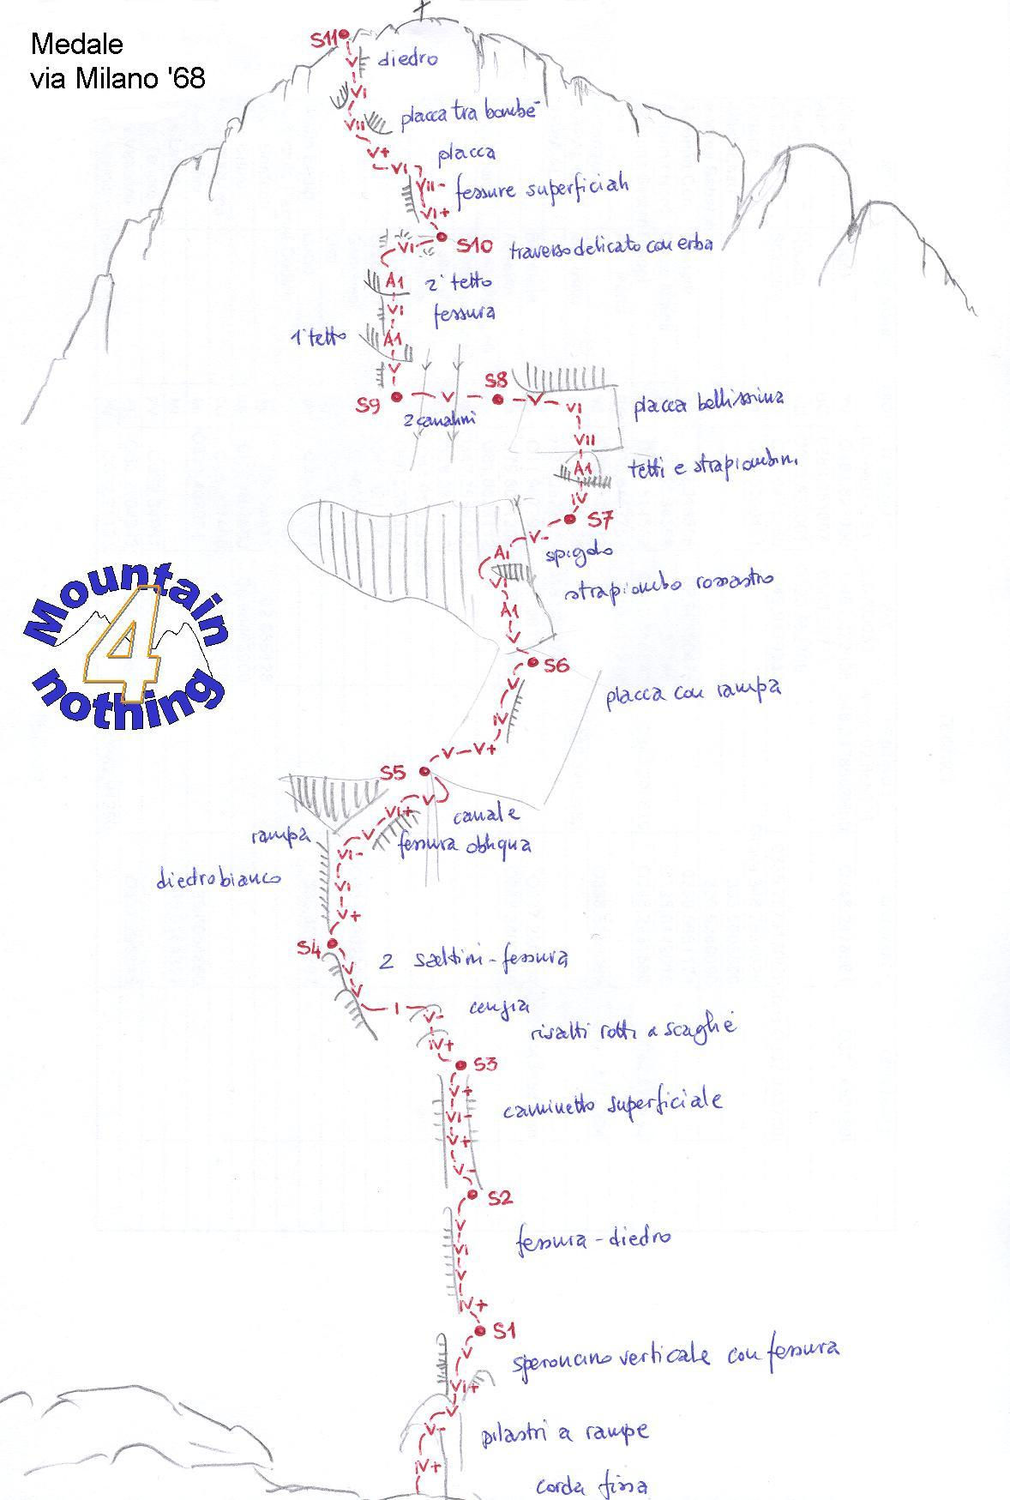 Medale
via Milano '68
S11
V
diedro
VI
VII
placca tra bombé
V+
placca
VI
VII-
fessure superficiali
VI+
S10
VI
traverso delicato con erba
A1
2° tetto
VI
fessura
1° tetto
A1
V
S9
V
S8
V
VI
placca bellissima
2 canalini
VII
A1
tetti e strapiombini
IV
S7
V-
A1
spigolo
VI
strapiombo rossastro
A1
V
S6
V
placca con rampa
IV
V
V+
S5
V
canale
VI+
V
fessura obliqua
rampa
VI-
diedro bianco
VI
V+
S4
V
2 saltini-fessura
V
I
cengia
V-
risalti rotti a scaglie
IV+
S3
V+
caminetto superficiale
VI-
V+
V-
S2
V
VI
fessura-diedro
V
IV+
S1
V
speroncino verticale con fessura
VI+
V
V-
pilastri a rampe
IV+
corda fissa
Mountain
4
nothing